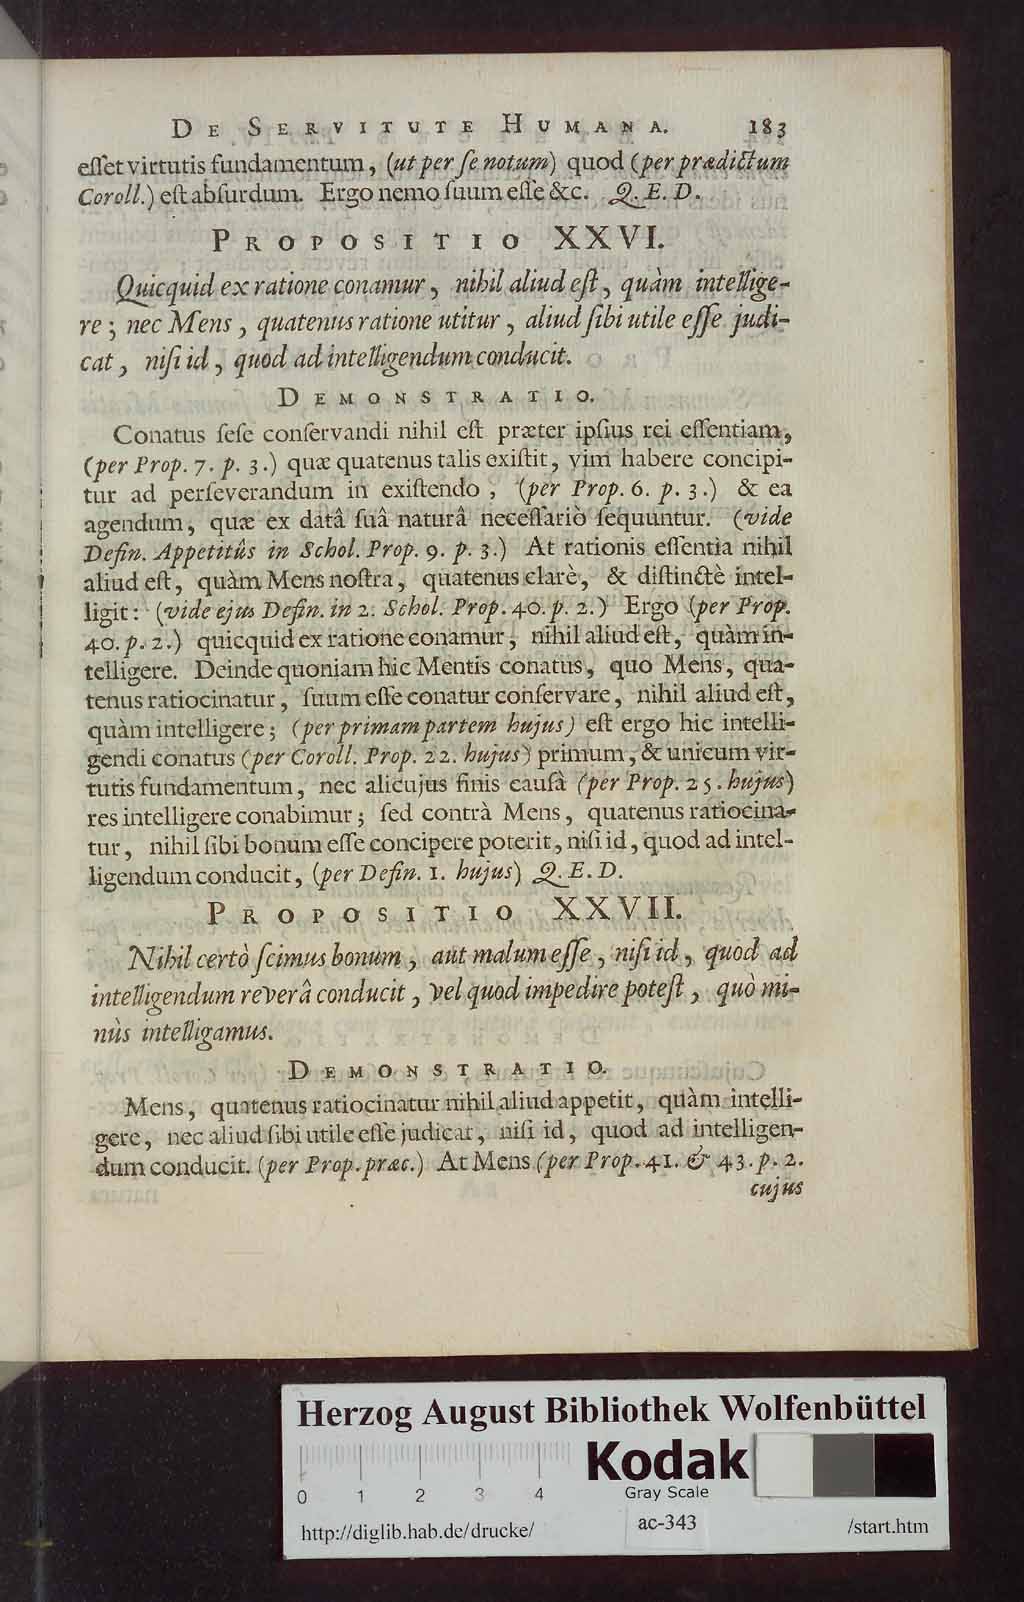 DE SERVITUTE HUMANA. 183
eſſet virtutis fundamentum, (ut per ſe notum) quod (per prædictum
Coroll.) eſt abſurdum. Ergo nemo ſuum eſſe &c. Q.E.D.
PROPOSITIO XXVI.
Quicquid ex ratione conamur, nihil aliud eſt, quàm intellige-
re; nec Mens, quatenus ratione utitur, aliud ſibi utile eſſe judi-
cat, niſi id, quod ad intelligendum conducit.
DEMONSTRATIO.
Conatus ſeſe conſervandi nihil eſt præter ipſius rei eſſentiam,
(per Prop. 7. p. 3.) quæ quatenus talis exiſtit, vim habere concipi-
tur ad perſeverandum in exiſtendo, (per Prop. 6. p. 3.) & ea
agendum, quæ ex datâ ſuâ naturâ neceſſariò ſequuntur. (vide
Defin. Appetitûs in Schol. Prop. 9. p. 3.) At rationis eſſentia nihil
aliud eſt, quàm Mens noſtra, quatenus clarè, & diſtinctè intel-
ligit: (vide ejus Defin. in 2. Schol. Prop. 40. p. 2.) Ergo (per Prop.
40. p. 2.) quicquid ex ratione conamur, nihil aliud eſt, quàm in-
telligere. Deinde quoniam hic Mentis conatus, quo Mens, qua-
tenus ratiocinatur, ſuum eſſe conatur conſervare, nihil aliud eſt,
quàm intelligere; (per primam partem hujus) eſt ergo hic intelli-
gendi conatus (per Coroll. Prop. 22. hujus) primum, & unicum vir-
tutis fundamentum, nec alicujus finis causâ (per Prop. 25. hujus)
res intelligere conabimur; ſed contrà Mens, quatenus ratiocina-
tur, nihil ſibi bonum eſſe concipere poterit, niſi id, quod ad intel-
ligendum conducit, (per Defin. 1. hujus) Q.E.D.
PROPOSITIO XXVII.
Nihil certò ſcimus bonum, aut malum eſſe, niſi id, quod ad
intelligendum reverâ conducit, vel quod impedire poteſt, quò mi-
nùs intelligamus.
DEMONSTRATIO.
Mens, quatenus ratiocinatur nihil aliud appetit, quàm intelli-
gere, nec aliud ſibi utile eſſe judicat, niſi id, quod ad intelligen-
dum conducit. (per Prop. præc.) At Mens (per Prop. 41. & 43. p. 2.
cujus
Herzog August Bibliothek Wolfenbüttel
Kodak
Gray Scale
0 1 2 3 4
http://diglib.hab.de/drucke/ ac-343 /start.htm